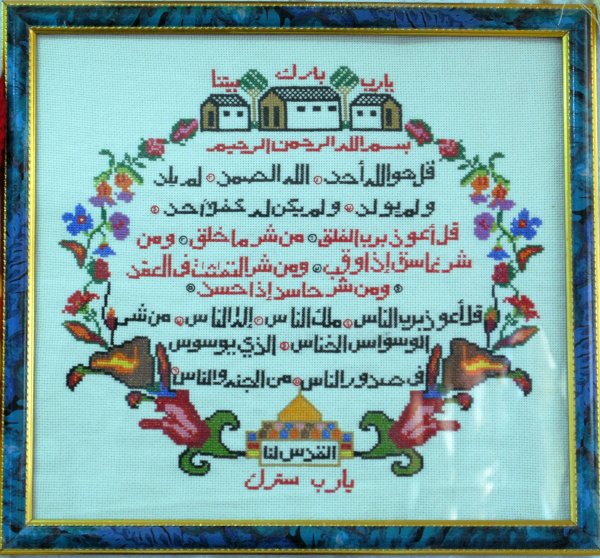 يارب بارك بيتنا
بسم الله الرحمن الرحيم
قل هو الله أحد الله الصمد لم يلد
و لم يولد و لم يكن له كفوا احد
قل أعوذ برب الفلق من شر ما خلق ومن
شر غاسق إذا وقب ومن شر النفثت في العقد
ومن شر حاسد إذا حسد
قل أعوذ برب الناس ملك الناس إله الناس من شر
الوسواس الخناس الذي يوسوس
في صدور الناس من الجنة والناس
القدس لنا
يارب سترك